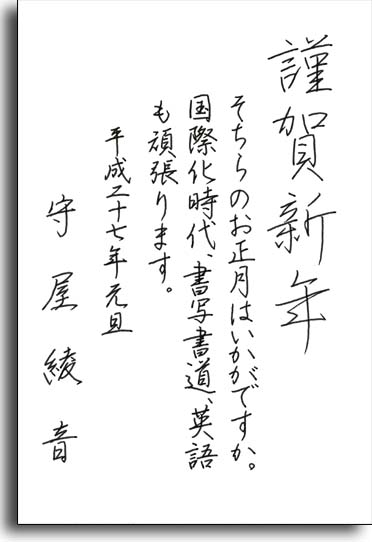 謹賀新年
そちらのお正月はいかがですか。
国際化時代、書写書道、英語
も頑張ります。
平成二十七年元旦
守屋綾音